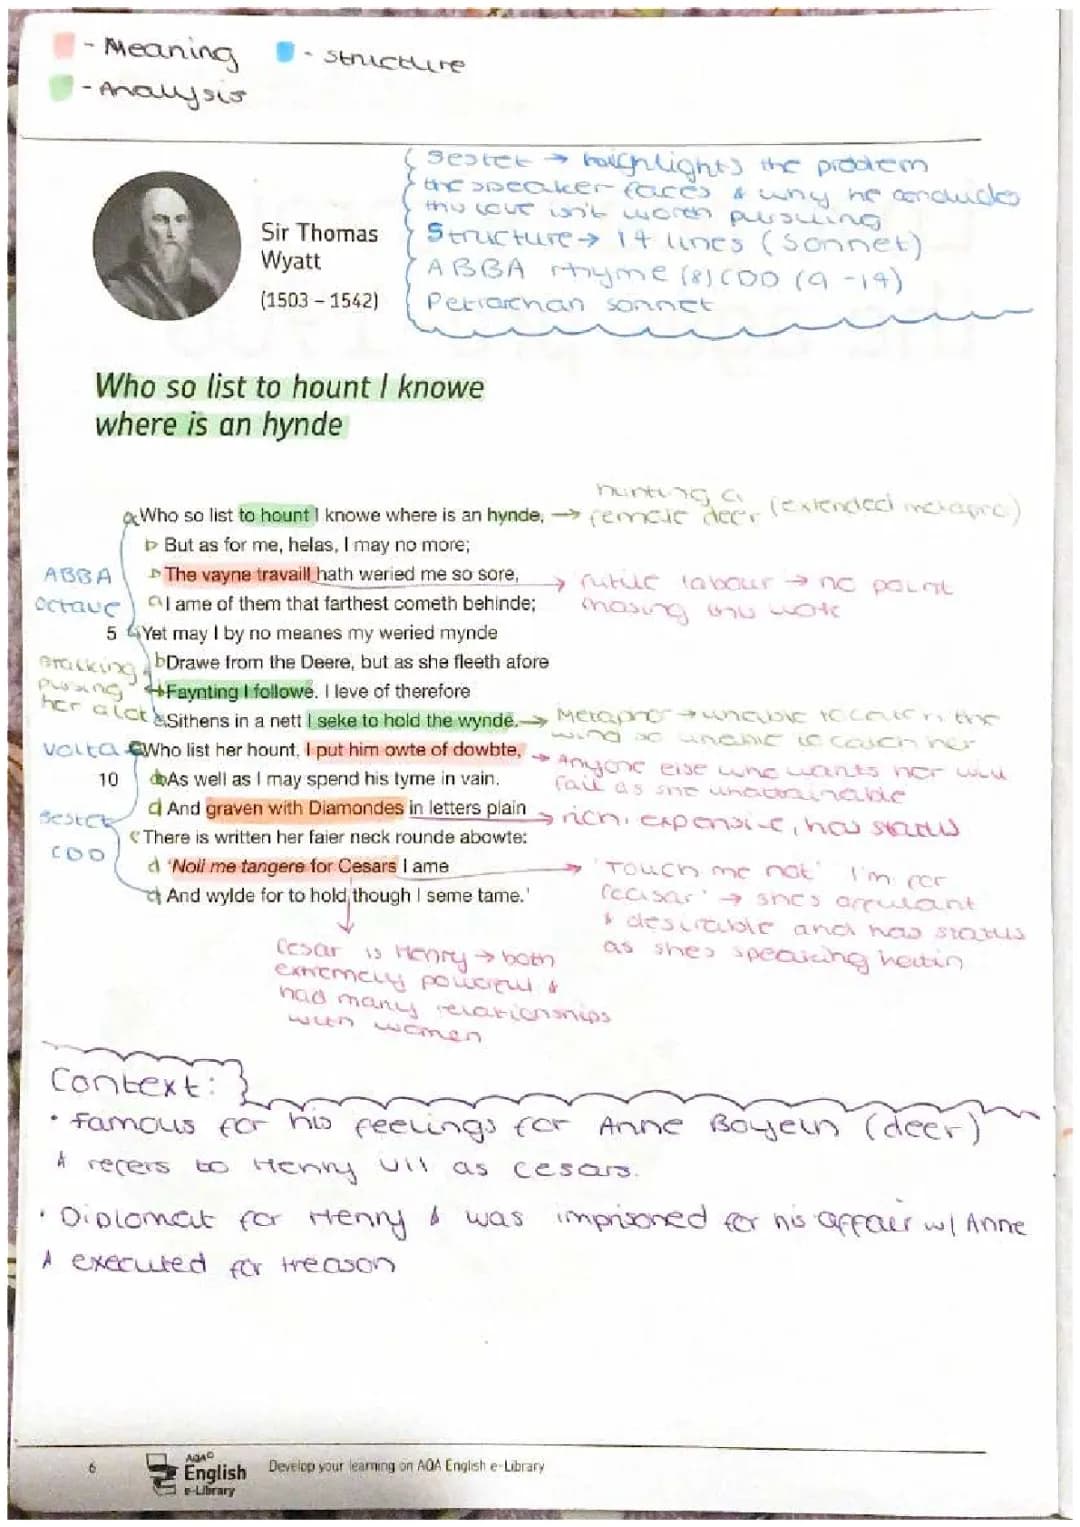 - Meaning - structure
- Analysis
Sestet → highlights the problem
the speaker faces & why he concludes
this love isn't worth pursuing
Structure → 14 lines (Sonnet)
ABBA rhyme (8) CDD (9-14)
Petrarchan sonnet
Sir Thomas
Wyatt
(1503 – 1542)
Who so list to hount I knowe
where is an hynde
hunting a
female deer (extended metapre)
a Who so list to hount I knowe where is an hynde, →
b But as for me, helas, I may no more;
ABBA
octave
b The vayne travaill hath weried me so sore,
→ futile labour → no point
chasing this
a I ame of them that farthest cometh behinde;
5 a Yet may I by no meanes my weried mynde
b Drawe from the Deere, but as she fleeth afore
stalking,
pursing
her alot
Faynting I followe. I leve of therefore
a Sithens in a nett I seke to hold the wynde. →
Metaphor → unable to catch the
wind so unable to catch her
volta
c Who list her hount, I put him owte of dowbte,
→ Anyone else who wants her will
fail as she unattainable
10 d As well as I may spend his tyme in vain.
d And graven with Diamondes in letters plain
→ rich, expensive, has status
sestet
CDD
c There is written her faier neck rounde abowte:
d 'Noli me tangere for Cesars I ame
→ 'Touch me not' I'm for
Ceasar' → shes
& desirable and has status
as shes speaking
d And wylde for to hold though I seme tame.'
Cesar is Henry → both
extremely powerful &
had many relationships
with women
Context:
• Famous for his feelings for Anne Boyeln (deer)
& refers to Henry VII as cesars.
• Diplomat for Henry & was imprisoned for his affair w/ Anne
& executed for treason
6
AQA
English
e-Library
Develop your learning on AQA English e-Library